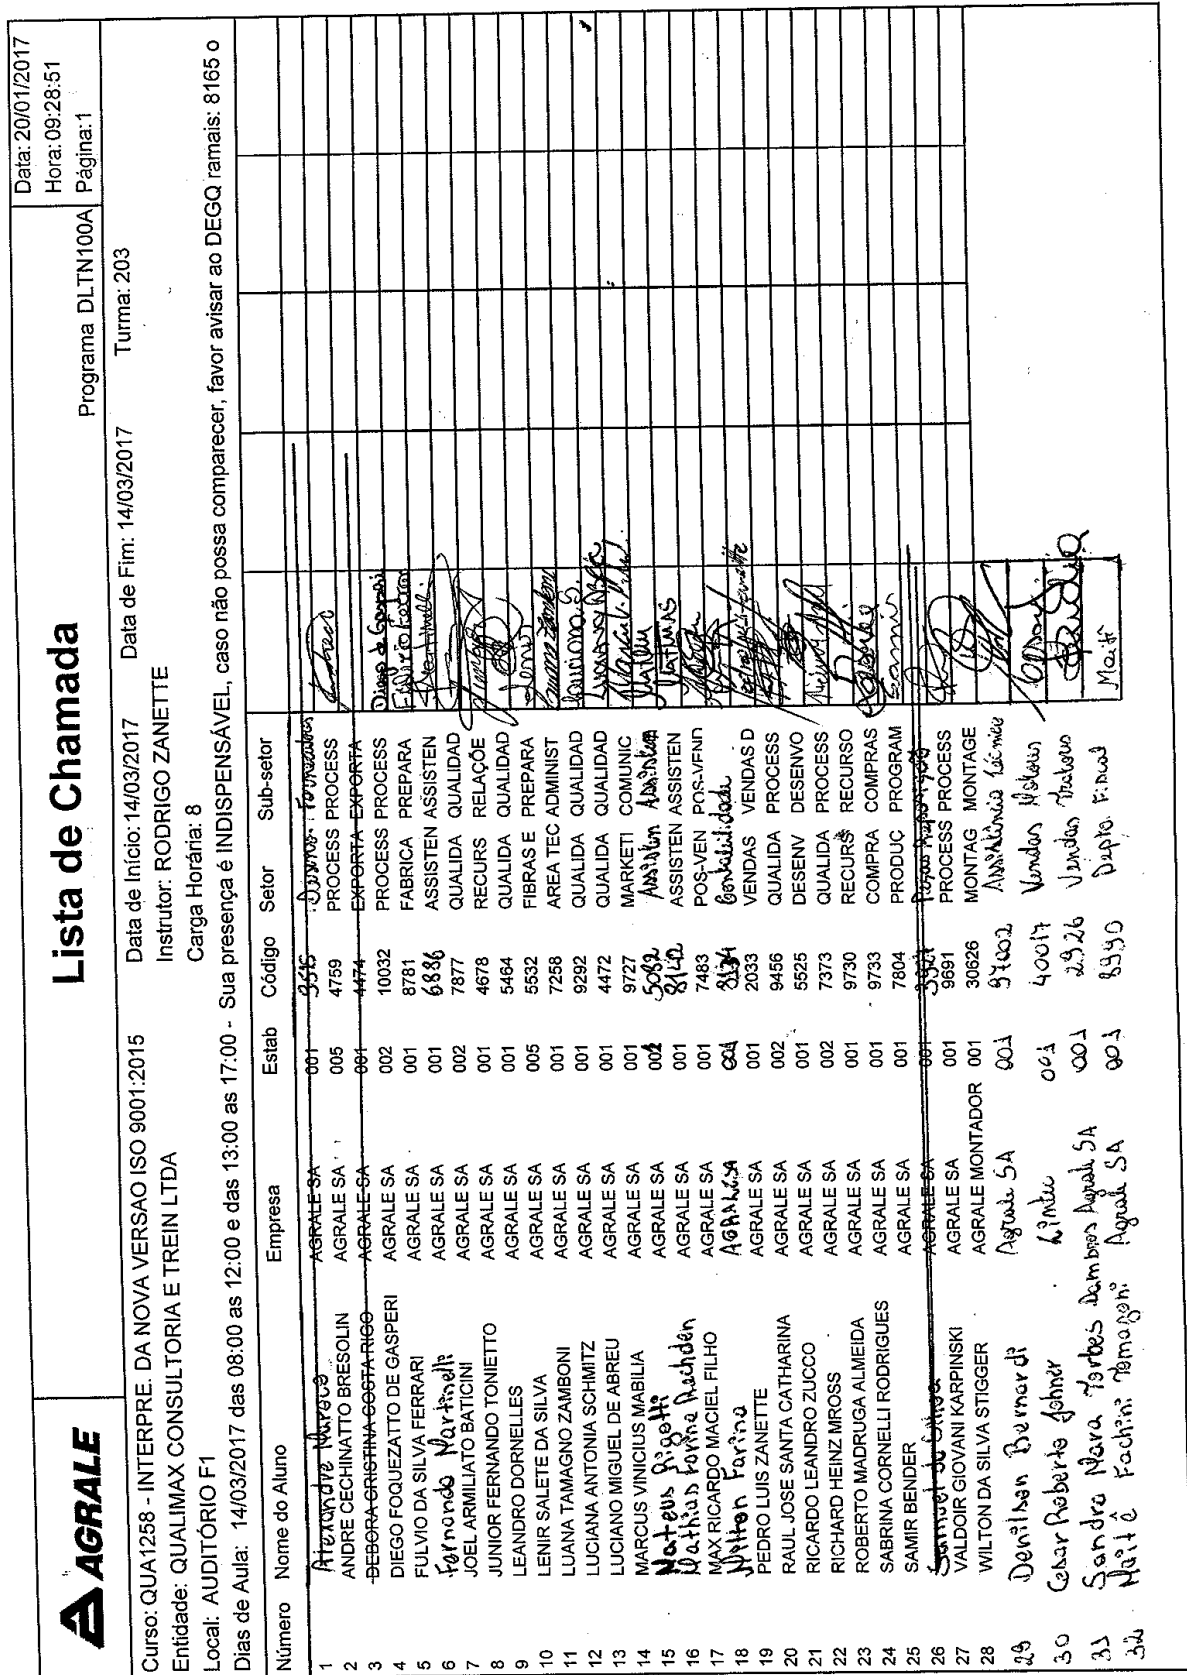 AGRALE
Lista de Chamada
Programa DLTN100A
Data: 20/01/2017
Hora: 09:28:51
Página:1
Curso: QUA1258 - INTERPRE. DA NOVA VERSAO ISO 9001:2015 Data de Início: 14/03/2017 Data de Fim: 14/03/2017 Turma: 203
Entidade: QUALIMAX CONSULTORIA E TREIN LTDA Instrutor: RODRIGO ZANETTE
Local: AUDITÓRIO F1 Carga Horária: 8
Dias de Aula: 14/03/2017 das 08:00 as 12:00 e das 13:00 as 17:00 - Sua presença é INDISPENSÁVEL, caso não possa comparecer, favor avisar ao DEGQ ramais: 8165 o
Número Nome do Aluno Empresa Estab Código Setor Sub-setor
1 Alexandre AGRALE SA 001 3515 Desenv. Fornecedores
2 ANDRE CECHINATTO BRESOLIN AGRALE SA 005 4759 PROCESS PROCESS
3 DEBORA CRISTINA COSTA RIGO AGRALE SA 001 4474 EXPORTA EXPORTA
4 DIEGO FOQUEZATTO DE GASPERI AGRALE SA 002 10032 PROCESS PROCESS
5 FULVIO DA SILVA FERRARI AGRALE SA 001 8781 FABRICA PREPARA
6 Fernando Martinelli AGRALE SA 001 6886 ASSISTEN ASSISTEN Martinelli
7 JOEL ARMILIATO BATICINI AGRALE SA 002 7877 QUALIDA QUALIDAD
8 JUNIOR FERNANDO TONIETTO AGRALE SA 001 4678 RECURS RELAÇÕE
9 LEANDRO DORNELLES AGRALE SA 001 5464 QUALIDA QUALIDAD
10 LENIR SALETE DA SILVA AGRALE SA 005 5532 FIBRAS E PREPARA Lenir
11 LUANA TAMAGNO ZAMBONI AGRALE SA 001 7258 AREA TEC ADMINIST Luana Zamboni
12 LUCIANA ANTONIA SCHMITZ AGRALE SA 001 9292 QUALIDA QUALIDAD Luciana S.
13 LUCIANO MIGUEL DE ABREU AGRALE SA 001 4472 QUALIDA QUALIDAD
14 MARCUS VINICIUS MABILIA AGRALE SA 001 9727 MARKETI COMUNIC
15 Mateus Rigotti AGRALE SA 002 5082 Assisten Assisten Mateus
16 Mathias Farina Rachdén AGRALE SA 001 8142 ASSISTEN ASSISTEN Mathias
17 MAX RICARDO MACIEL FILHO AGRALE SA 001 7483 POS-VEN POS-VEND
18 Nilton Farina AGRALE SA 001 8134 Contabilidade
19 PEDRO LUIS ZANETTE AGRALE SA 001 2033 VENDAS VENDAS D
20 RAUL JOSE SANTA CATHARINA AGRALE SA 002 9456 QUALIDA PROCESS
21 RICARDO LEANDRO ZUCCO AGRALE SA 001 5525 DESENV DESENVO
22 RICHARD HEINZ MROSS AGRALE SA 002 7373 QUALIDA PROCESS
23 ROBERTO MADRUGA ALMEIDA AGRALE SA 001 9730 RECURS RECURSO
24 SABRINA CORNELLI RODRIGUES AGRALE SA 001 9733 COMPRA COMPRAS
25 SAMIR BENDER AGRALE SA 001 7804 PRODUÇ PROGRAM Samir
26 Samuel de AGRALE SA 001
27 VALDOIR GIOVANI KARPINSKI AGRALE SA 001 9691 PROCESS PROCESS
28 WILTON DA SILVA STIGGER AGRALE MONTADOR 001 30626 MONTAG MONTAGE
29 Denilson Bernardi Agrale SA 001 97002 Assistência Técnica
30 Cesar Roberto Johner Lintec 001 40017 Vendas Motores
31 Sandra Mara Forbes Dambros Agrale SA 001 2926 Vendas Tratores
32 Maitê Fachini Tomazoni Agrale SA 001 8990 Depto. Fiscal Maitê